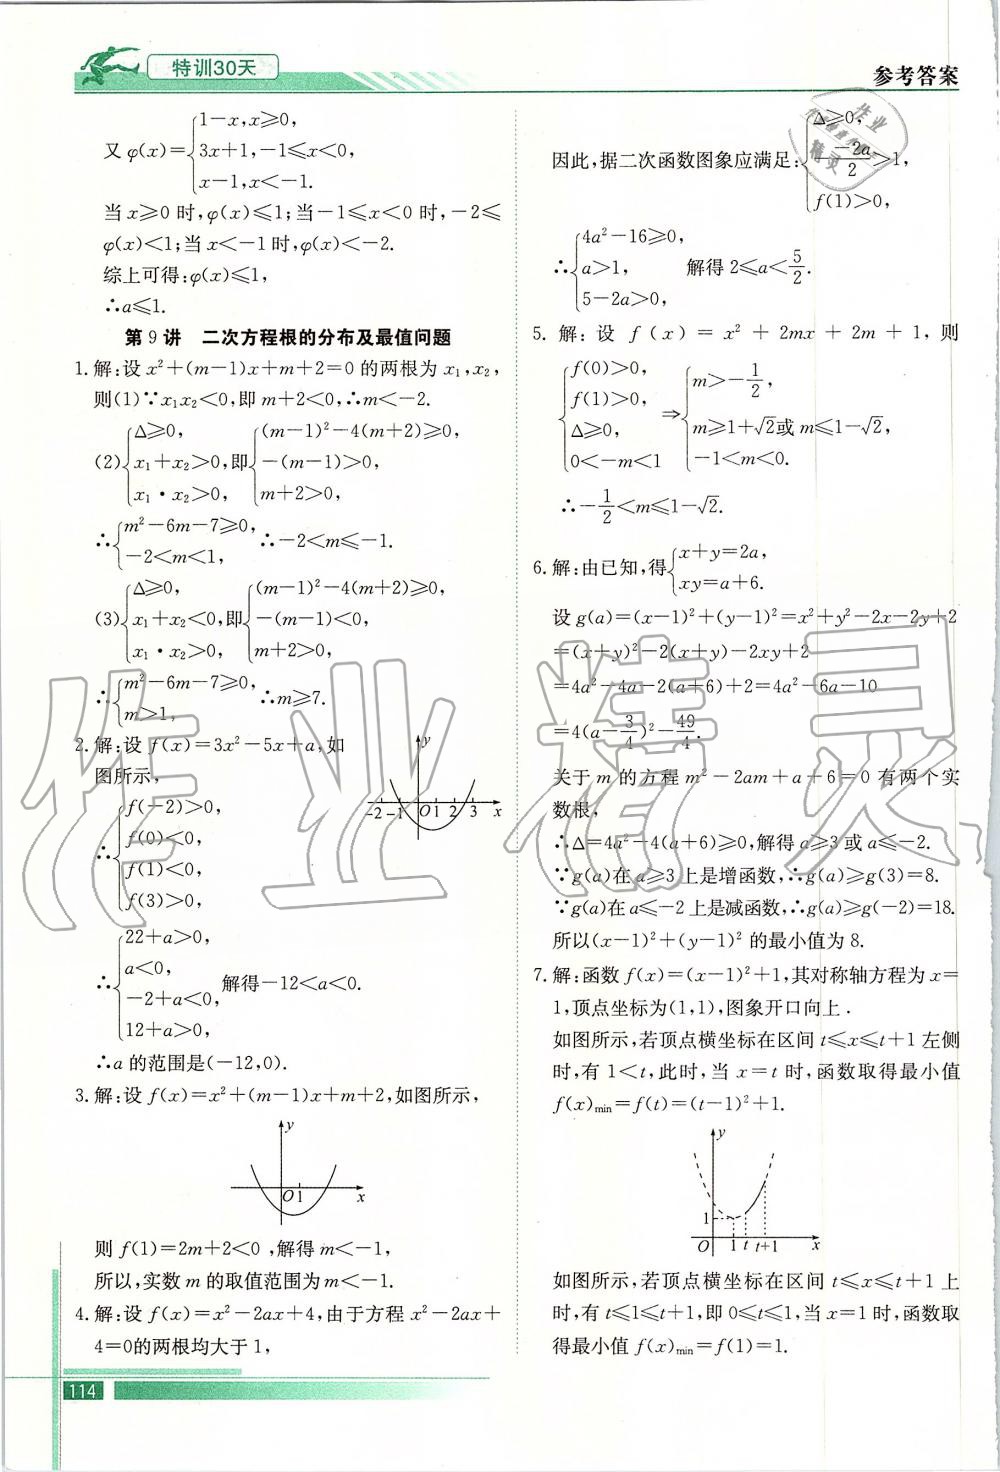 特训30天
参考答案
又φ(x)={1-x,x≥0,
3x+1,-1≤x<0,
x-1,x<-1.
当x≥0时,φ(x)≤1;当-1≤x<0时,-2≤
φ(x)<1;当x<-1时,φ(x)<-2.
综上可得:φ(x)≤1,
∴a≤1.
第9讲 二次方程根的分布及最值问题
1.解:设x²+(m-1)x+m+2=0的两根为x₁,x₂,
则(1)∵x₁x₂<0,即m+2<0,∴m<-2.
(2){Δ≥0, x₁+x₂>0, x₁·x₂>0, 即{(m-1)²-4(m+2)≥0, -(m-1)>0, m+2>0,
∴{m²-6m-7≥0, -2<m<1, ∴-2<m≤-1.
(3){Δ≥0, x₁+x₂<0, x₁·x₂>0, 即{(m-1)²-4(m+2)≥0, -(m-1)<0, m+2>0,
∴{m²-6m-7≥0, m>1, ∴m≥7.
2.解:设f(x)=3x²-5x+a,如
图所示,
∴{f(-2)>0,
f(0)<0,
f(1)<0,
f(3)>0,
y
-2 -1 O 1 2 3 x
∴{22+a>0,
a<0,
-2+a<0,
12+a>0,
解得-12<a<0.
∴a的范围是(-12,0).
3.解:设f(x)=x²+(m-1)x+m+2,如图所示,
y
O 1 x
则f(1)=2m+2<0,解得m<-1,
所以,实数m的取值范围为m<-1.
4.解:设f(x)=x²-2ax+4,由于方程x²-2ax+
4=0的两根均大于1,
114
因此,据二次函数图象应满足:{Δ≥0, -\frac{-2a}{2}>1, f(1)>0,
∴{4a²-16≥0, a>1, 5-2a>0, 解得2≤a<\frac{5}{2}.
5.解:设f(x)=x²+2mx+2m+1,则
{f(0)>0, f(1)>0, Δ≥0, 0<-m<1 ⇒{m>-\frac{1}{2}, m≥1+√2或m≤1-√2, -1<m<0.
∴-\frac{1}{2}<m≤1-√2.
6.解:由已知,得{x+y=2a, xy=a+6.
设g(a)=(x-1)²+(y-1)²=x²+y²-2x-2y+2
=(x+y)²-2(x+y)-2xy+2
=4a²-4a-2(a+6)+2=4a²-6a-10
=4(a-\frac{3}{4})²-\frac{49}{4}.
关于m的方程m²-2am+a+6=0有两个实
数根,
∴Δ=4a²-4(a+6)≥0,解得a≥3或a≤-2.
∵g(a)在a≥3上是增函数,∴g(a)≥g(3)=8.
∵g(a)在a≤-2上是减函数,∴g(a)≥g(-2)=18.
所以(x-1)²+(y-1)²的最小值为8.
7.解:函数f(x)=(x-1)²+1,其对称轴方程为x=
1,顶点坐标为(1,1),图象开口向上.
如图所示,若顶点横坐标在区间t≤x≤t+1左侧
时,有1<t,此时,当x=t时,函数取得最小值
f(x)min=f(t)=(t-1)²+1.
y
1
O 1 t t+1 x
如图所示,若顶点横坐标在区间t≤x≤t+1上
时,有t≤1≤t+1,即0≤t≤1,当x=1时,函数取
得最小值f(x)min=f(1)=1.
作业精灵